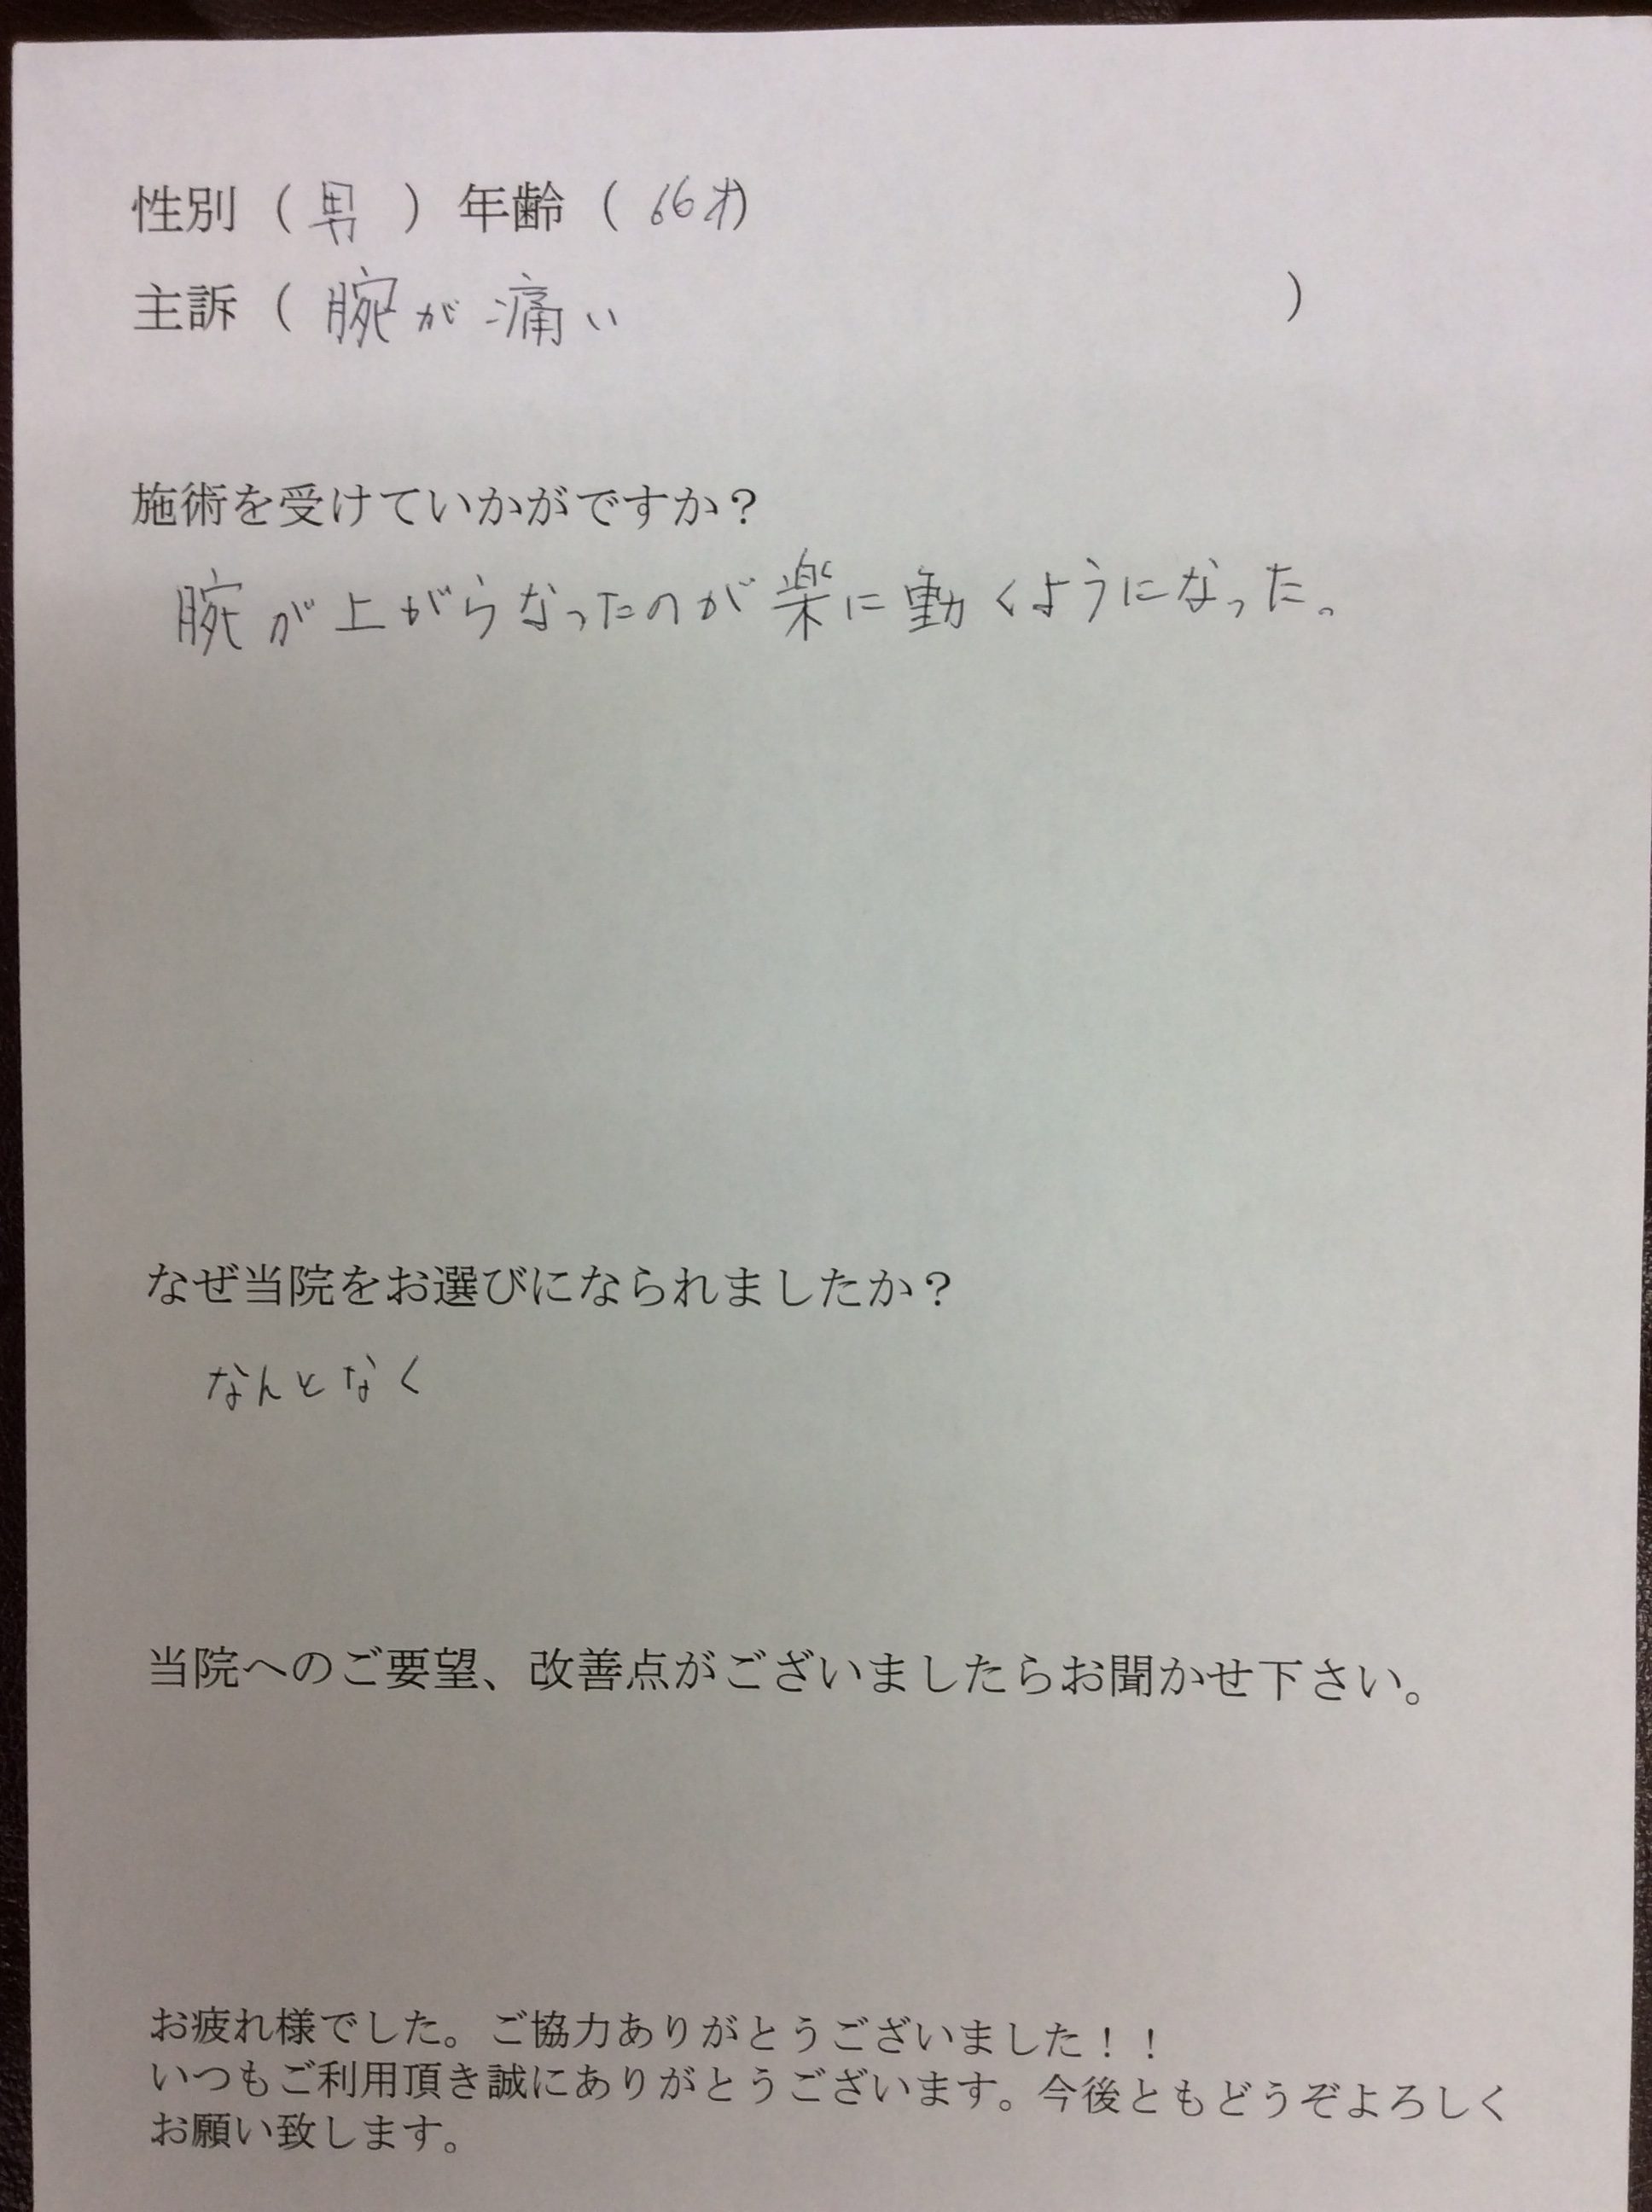 性別（男）年齢（66才）
主訴（腕が痛い）
施術を受けていかがですか？
腕が上がらなったのが楽に動くようになった。
なぜ当院をお選びになられましたか？
なんとなく
当院へのご要望、改善点がございましたらお聞かせ下さい。
お疲れ様でした。ご協力ありがとうございました！！
いつもご利用頂き誠にありがとうございます。今後ともどうぞよろしく
お願い致します。